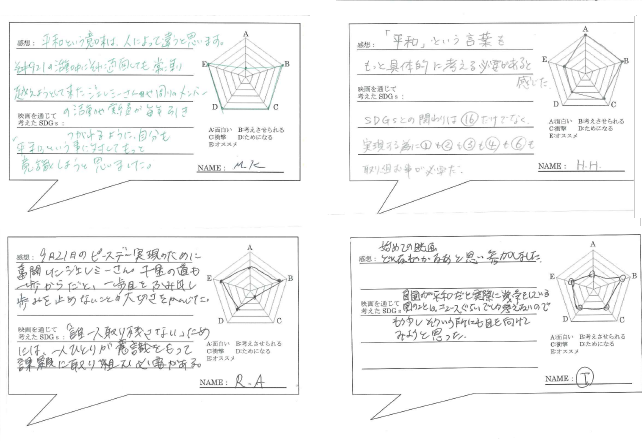 感想：平和という意味は、人によって違うと思います。
映画を通じて
考えたSDGs：
の活動や
つなげれるように、自分も
平和という事に対してもっと
意識しようと思いました。
A
B
C
D
E
A:面白い B:考えさせられる
C:衝撃 D:ためになる
E:オススメ
NAME： M.K
感想：「平和」という言葉も
もっと具体的に考える必要があると
感じた。
映画を通じて
考えたSDGs：
SDGsとの関わりは⑯だけでなく、
実現する為に①も②も③も④も⑥も
取り組む事が必要だ。
A
B
C
D
E
A:面白い B:考えさせられる
C:衝撃 D:ためになる
E:オススメ
NAME： H.H.
感想：9月21日のピースデー実現のために
奮闘したジェレミーさん 千里の道も
一歩からだと、一歩目をふみ出し
歩みを止めないことの大切さを
映画を通じて
考えたSDGs：「誰一人取り残さない」ため
には、一人ひとりが意識をもって
課題に取り組む必要がある。
A
B
C
D
E
A:面白い B:考えさせられる
C:衝撃 D:ためになる
E:オススメ
NAME： R.A
初めての映画
感想：どんなものかなあと思い参加しました。
映画を通じて
考えたSDGs：
自国が平和だと実際に戦争をしている
国のことは、ニュースぐらいでしか考えないので
もう少しそういう所にも目を向けて
みようと思った。
A
B
C
D
E
A:面白い B:考えさせられる
C:衝撃 D:ためになる
E:オススメ
NAME： I